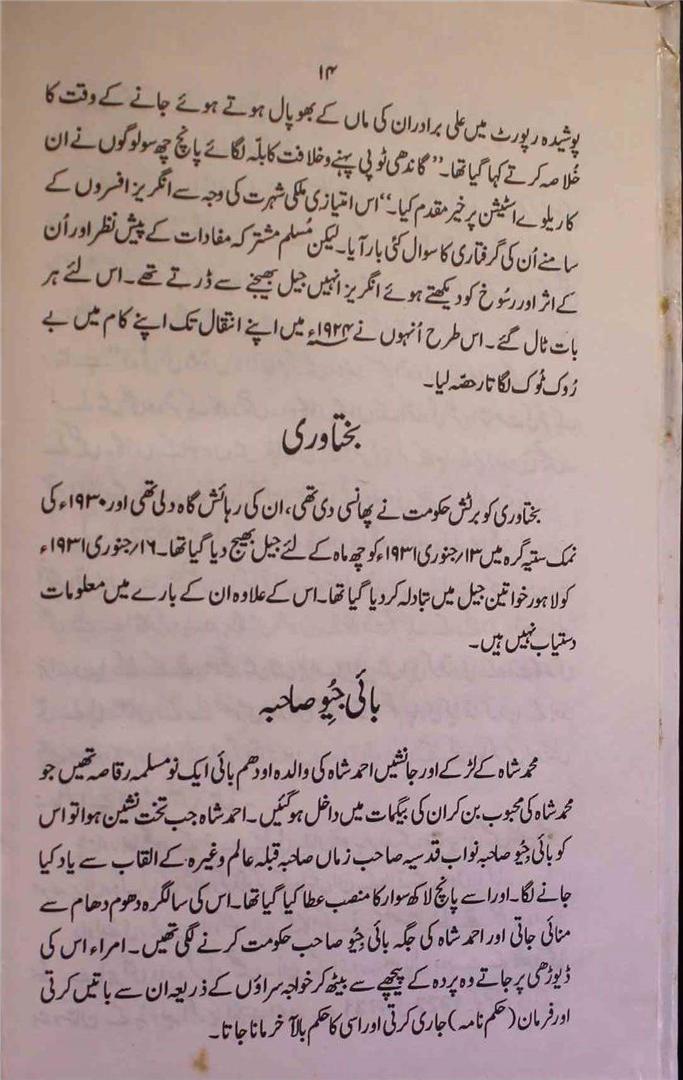 ۱۴
پوشیدہ رپورٹ میں علی برادران کی ماں کے بھوپال ہوتے ہوئے جانے کے وقت کا
خُلاصہ کرتے کہا گیا تھا۔ ’’گاندھی ٹوپی پہنے و خلافت کا بلّہ لگائے پانچ چھ سو لوگوں نے ان
کا ریلوے اسٹیشن پر خیر مقدم کیا۔‘‘ اس امتیازی ملکی شہرت کی وجہ سے انگریز افسروں کے
سامنے اُن کی گرفتاری کا سوال کئی بار آیا۔ لیکن مُسلم مشترکہ مفادات کے پیش نظر اور اُن
کے اثر اور رسُوخ کو دیکھتے ہوئے انگریز انہیں جیل بھیجنے سے ڈرتے تھے۔ اس لئے ہر
بات ٹال گئے۔ اس طرح اُنہوں نے ۱۹۲۴ء میں اپنے انتقال تک اپنے کام میں بے
رُوک ٹوک لگاتار حصّہ لیا۔
بختاوری
بختاوری کو برٹش حکومت نے پھانسی دی تھی، ان کی رہائش گاہ دلی تھی اور ۱۹۳۰ء کی
نمک ستیہ گرہ میں ۱۳؍جنوری ۱۹۳۱ء کو چھ ماہ کے لئے جیل بھیج دیا گیا تھا۔ ۱۶؍جنوری ۱۹۳۱ء
کو لاہور خواتین جیل میں تبادلہ کر دیا گیا تھا۔ اس کے علاوہ ان کے بارے میں معلومات
دستیاب نہیں ہیں۔
بائی جیُو صاحبہ
محمد شاہ کے لڑکے اور جانشیں احمد شاہ کی والدہ اودھم بائی ایک نو مسلمہ رقاصہ تھیں جو
محمد شاہ کی محبوب بن کر ان کی بیگمات میں داخل ہو گئیں۔ احمد شاہ جب تخت نشین ہوا تو اس
کو بائی جیُو صاحبہ نواب قدسیہ صاحب زماں صاحبہ قبلہ عالم وغیرہ کے القاب سے یاد کیا
جانے لگا۔ اور اسے پانچ لاکھ سوار کا منصب عطا کیا گیا تھا۔ اس کی سالگرہ دھوم دھام سے
منائی جاتی اور احمد شاہ کی جگہ بائی جیُو صاحب حکومت کرنے لگی تھیں۔ امراء اس کی
ڈیوڑھی پر جاتے وہ پردہ کے پیچھے سے بیٹھ کر خواجہ سراؤں کے ذریعہ ان سے باتیں کرتی
اور فرمان (حکم نامہ) جاری کرتی اور اسی کا حکم بالآخر مانا جاتا۔